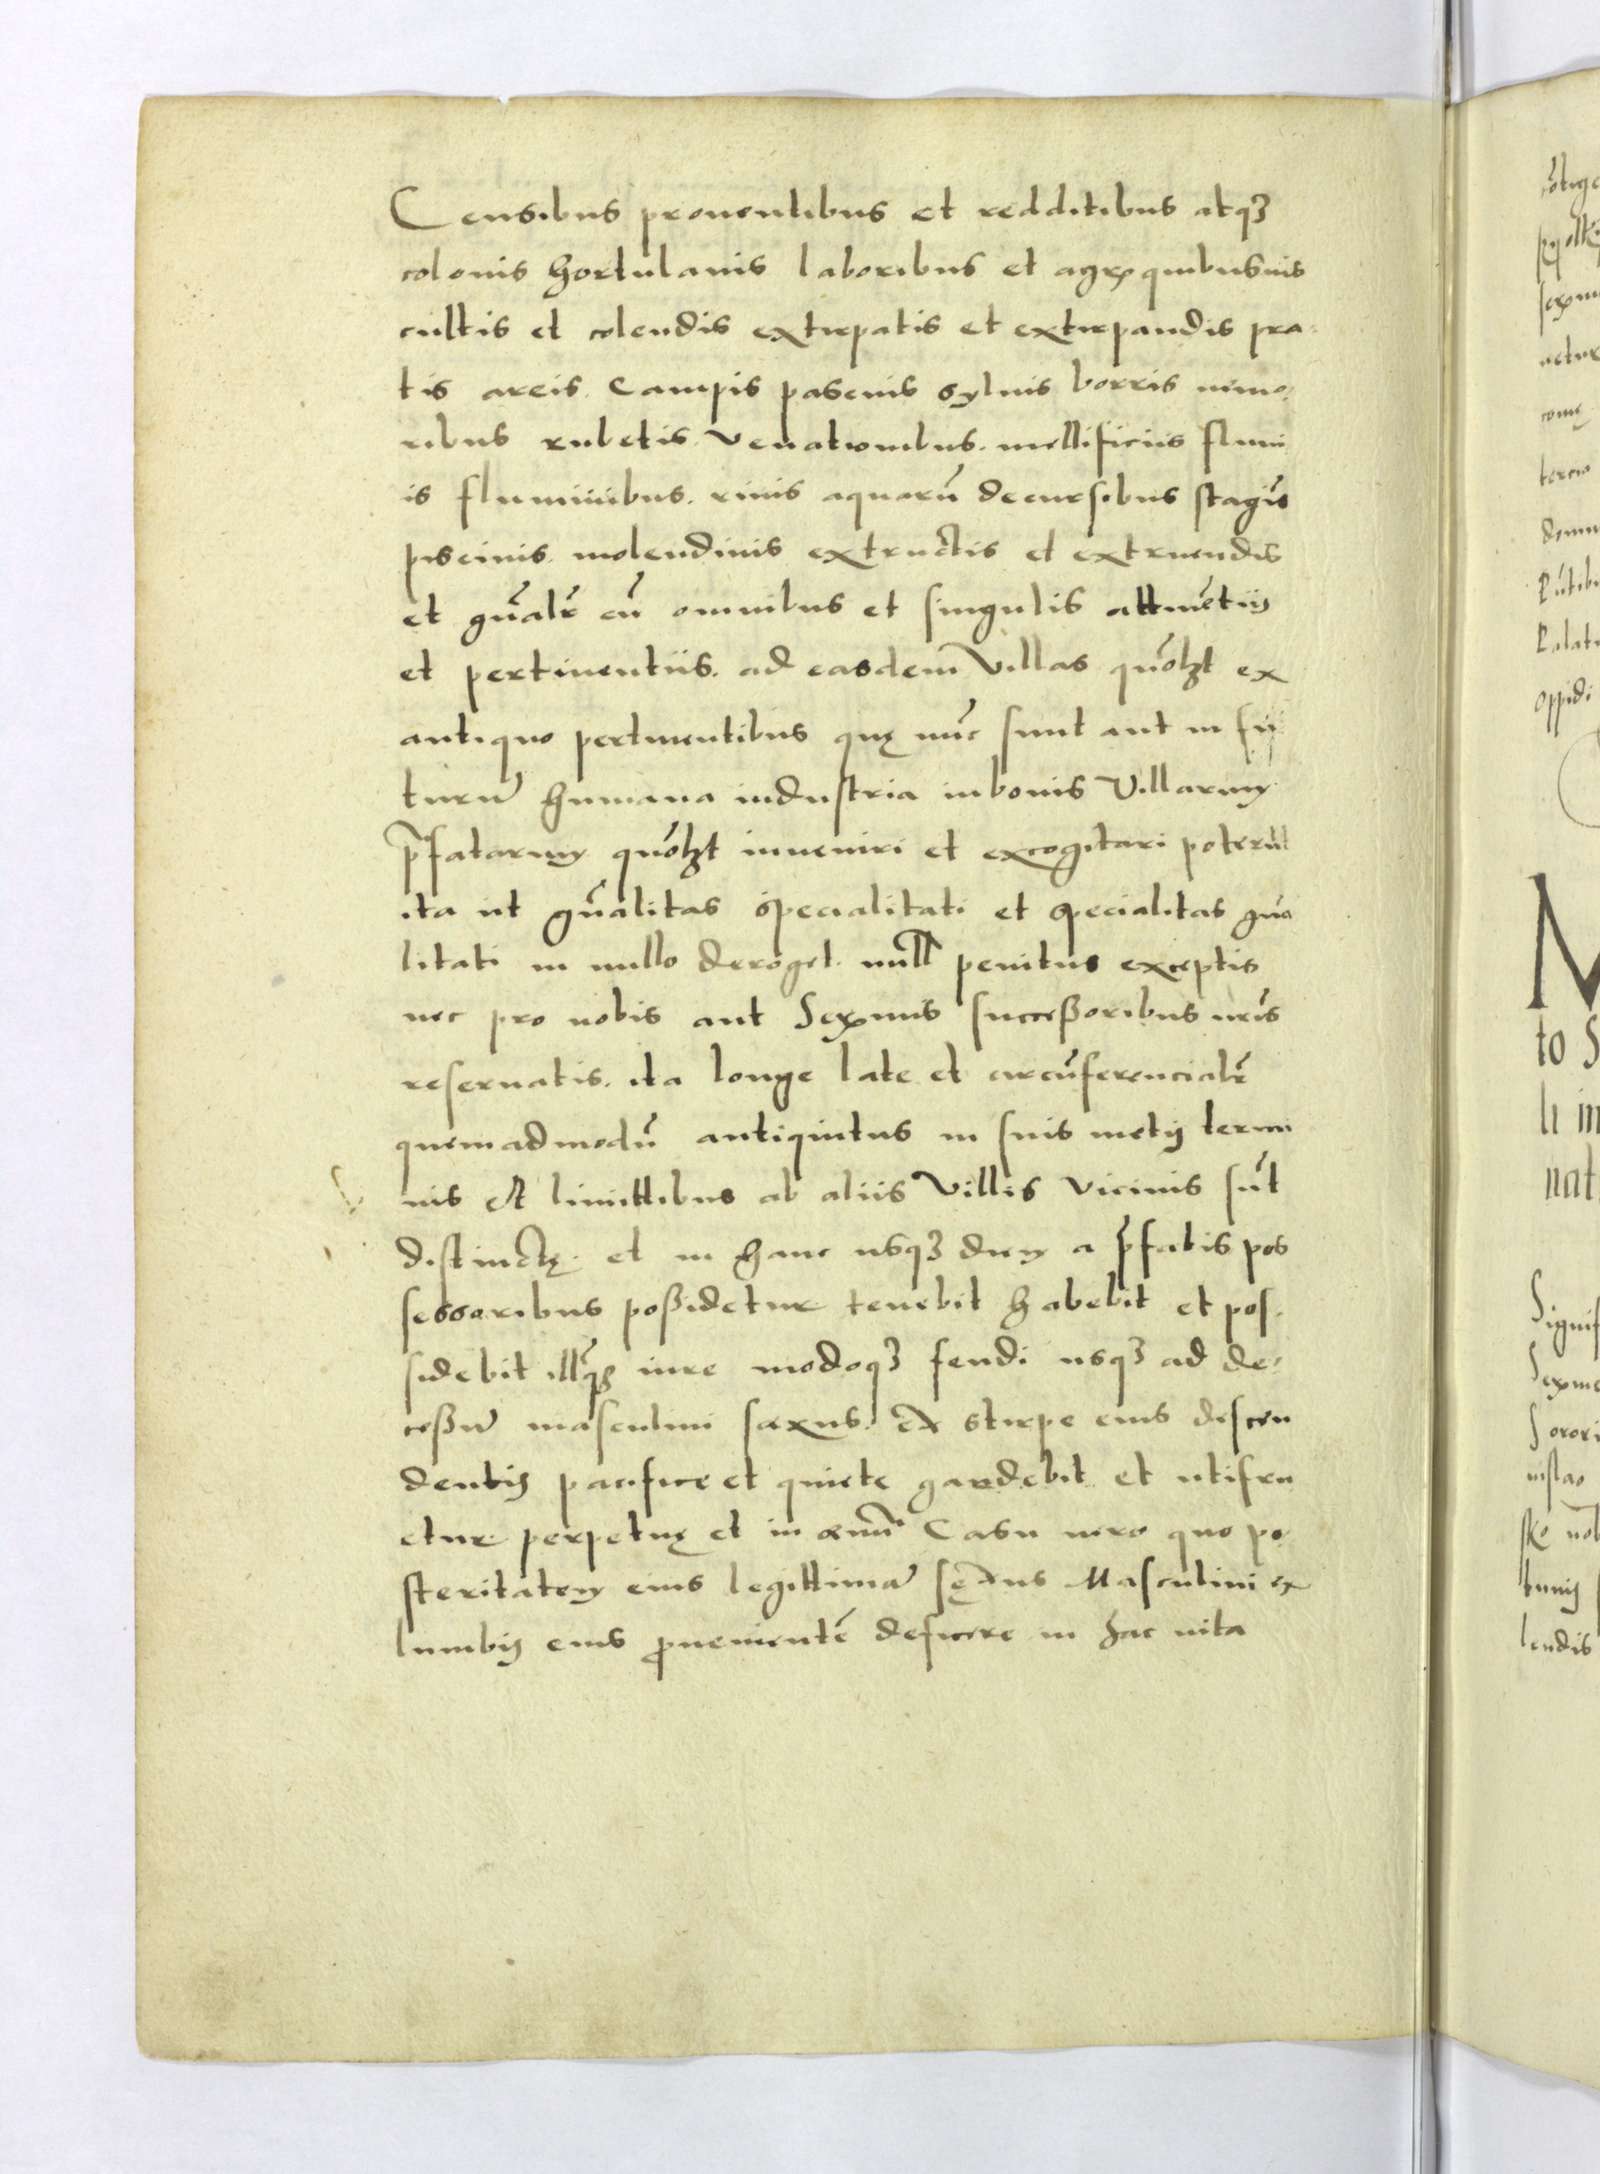 Censibus prouentibus et redditibus atqȝ
colonis hortulanis laboribus et agris quibusuis
cultis et colendis extirpatis et extirpandis pra-
tis areis. Campis pascuis syluis borris nemo-
ribus rubetis. Venationibus. mellificiis fluui
is fluminibus. riuis aquarū decursibus stagīs
piscinis. molendinis extructis et extruendis
et gn̄alr̄ cū omnibus et singulis attinētiis
et pertinentiis. ad easdem Villas quōlꝫt ex
antiquo pertinentibus quę nūc sunt aut in fu
turum humana industria in bonis Villarum
p̄fatarum quōlꝫt inueniri et excogitari poterūt
ita ut gn̄alitas specialitati et specialitas gn̄a
litati in nullo deroget. null̄ penitus exceptis
nec pro nobis aut Serenis successoribus nr̄is
reseruatis. ita longe late et circūferencialr̄
quemadmodū antiquitus in suis metis termi
nis et limittibus ab aliis Villis vicinis sūt
distinctę. et in hanc usqȝ diem a p̄fatis pos
sessoribus possidetur tenebit habebit et pos-
sidebit iure modoqȝ feudi usqȝ ad de-
cessum masculini sexus. Ex stirpe eius descen
dentis pacifice et quiete gaudebit et utifru
etur perpetuę et in æuū Casu uero quo po
steritatem eius legittimam sęxus Masculini ex
lumbis eius ꝓuenientē deficere in hac uita
M
to S
li in
nat
Signif
Sexme
Sorori
oppidi
lendis